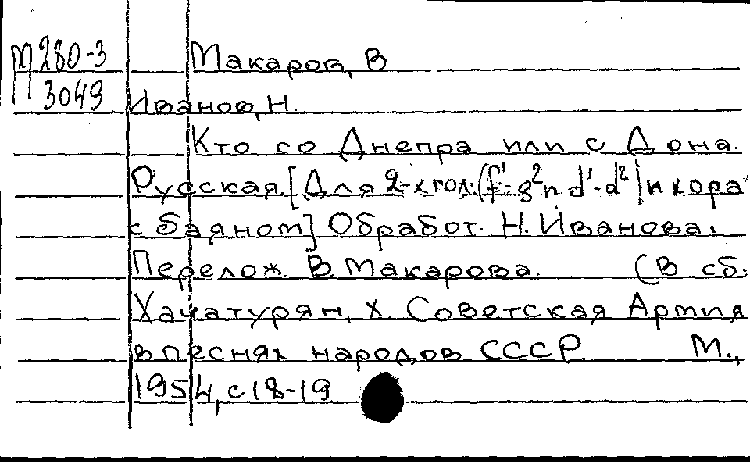 М280-3 Макаров, В
3049 Иванов, Н.
Кто со Днепра или с Дона.
Русская. [Для 2-х гол. (f¹-g² и d¹-d²) и хора
с баяном] Обработ. Н. Иванова.
Перелож. В. Макарова. (В сб:
Хачатурян, Х. Советская Армия
в песнях народов СССР М.,
1954, с 18-19